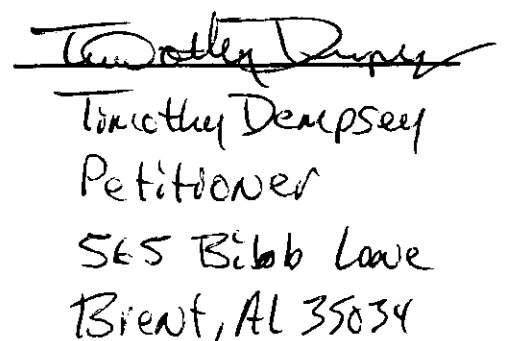 Timothy Dempsey
Timothy Dempsey
Petitioner
565 Bibb Lane
Brent, Al 35034